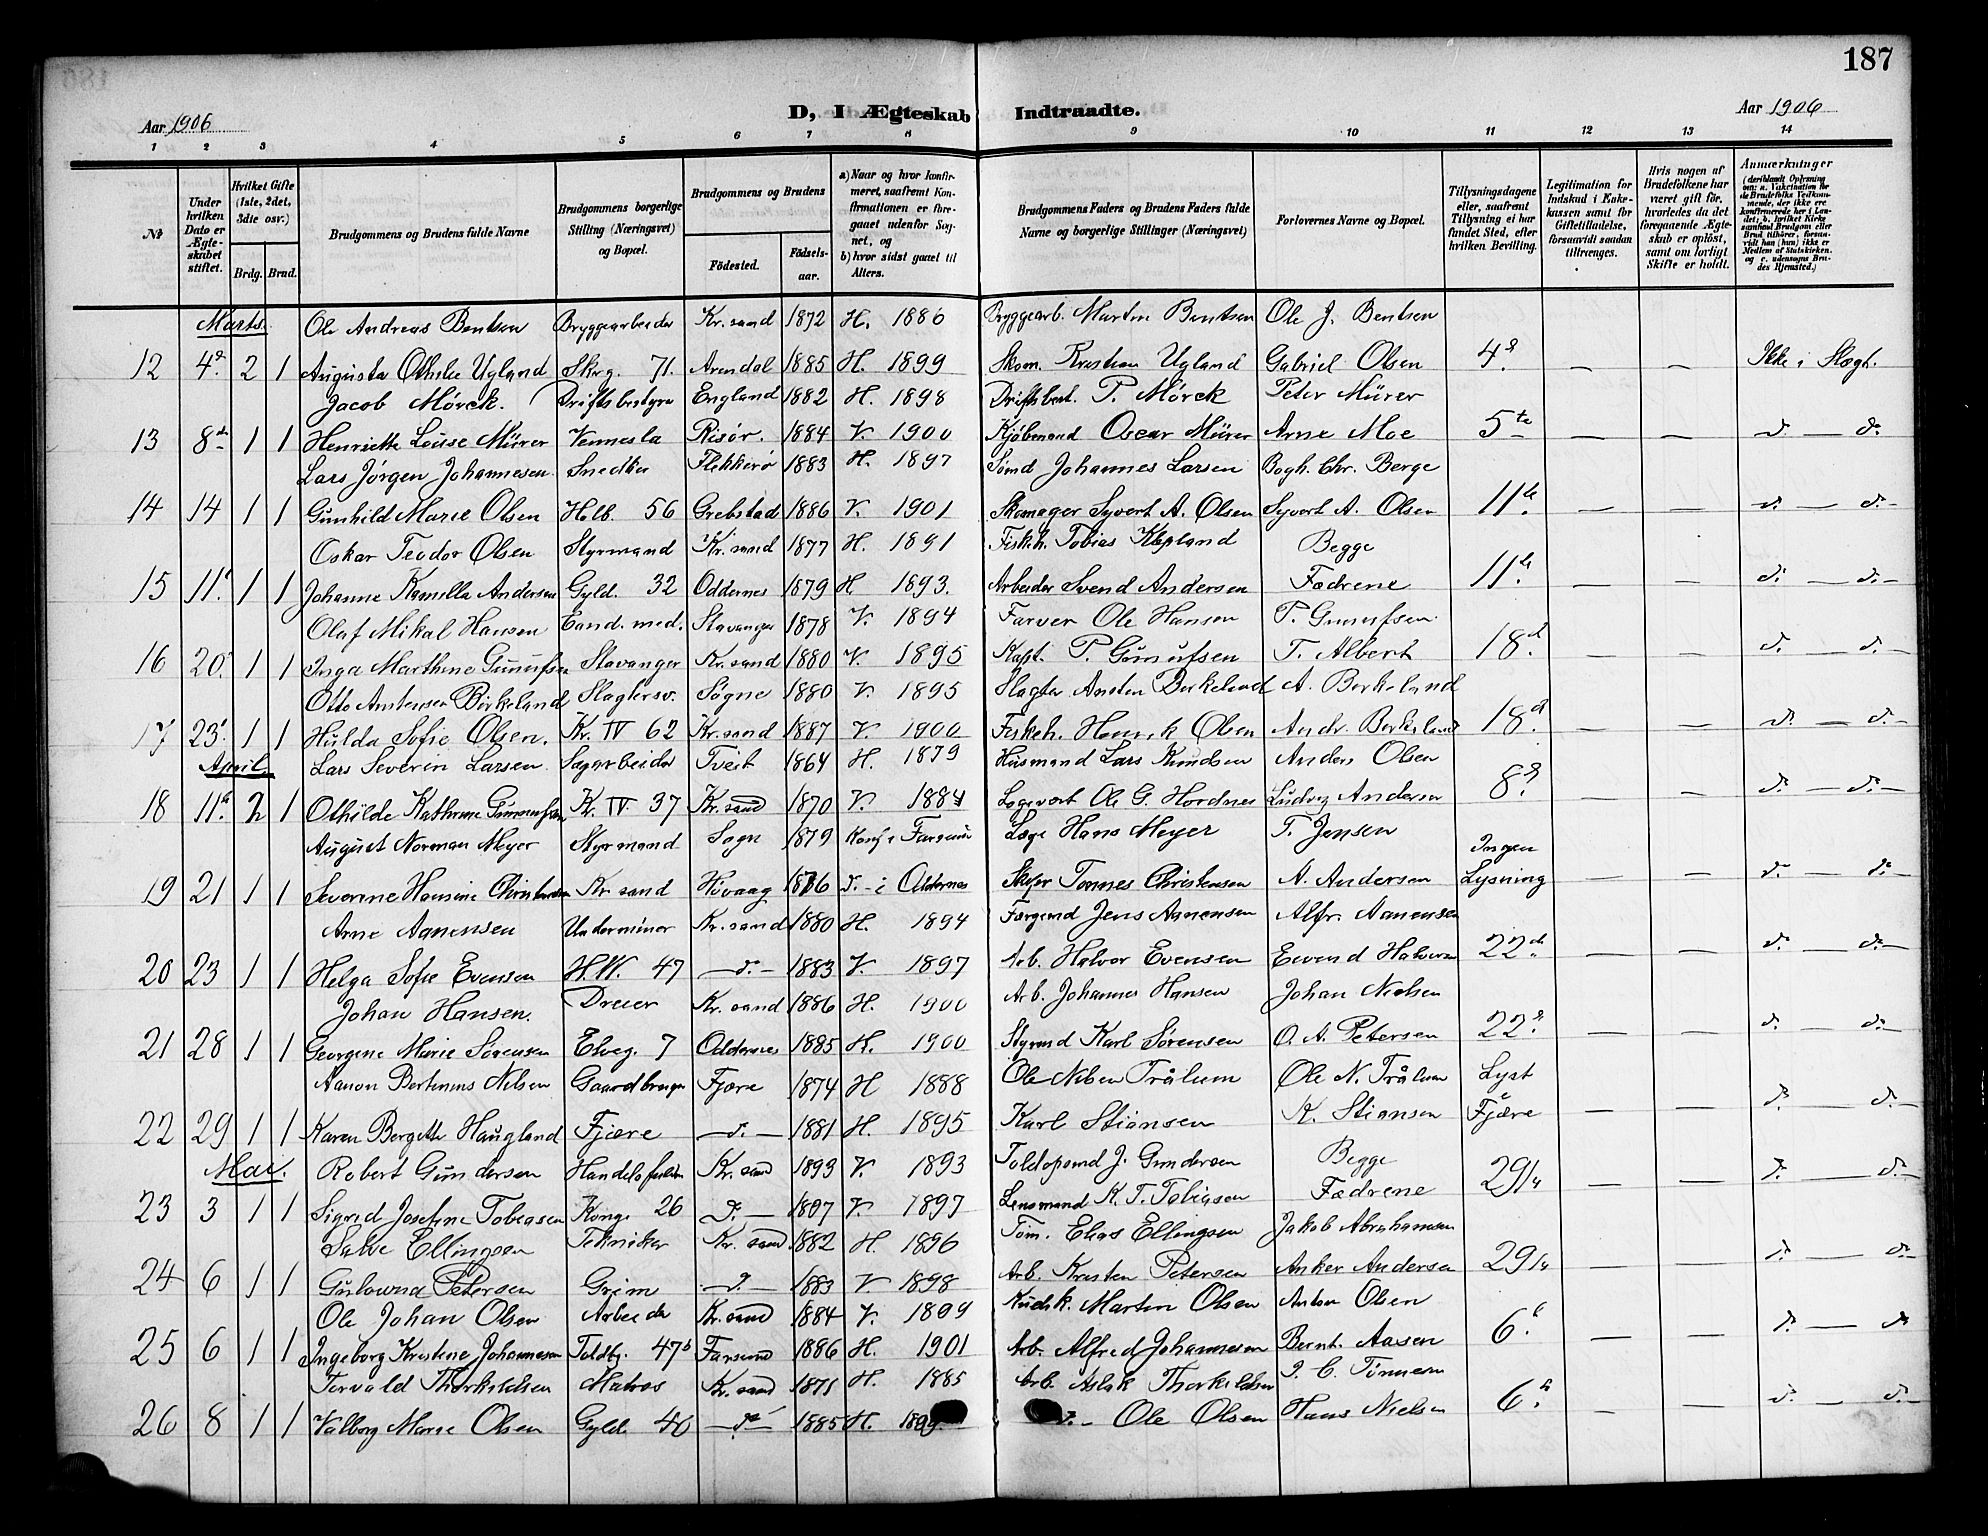 187
D, I Ægteskab Indtraadte.
Aar 1906
Aar 1906
1 2 3 4 5 6 7 8 9 10 11 12 13 14
№
Under hvilken Dato er Ægteskabet stiftet.
Hvilket Gifte (1ste, 2det, 3die osv.)
Brdg. Brud.
Brudgommens og Brudens fulde Navne
Brudgommens borgerlige Stilling (Næringsvei) og Bopæl.
Brudgommens og Brudens
Fødested.
Fødselsaar.
a) Naar og hvor konfirmeret, saafremt Konfirmationen er foregaaet udenfor Sognet, og
b) hvor sidst gaaet til Alters.
Brudgommens Faders og Brudens Faders fulde Navne og borgerlige Stillinger (Næringsvei)
Forlovernes Navne og Bopæl.
Tillysningsdagene eller, saafremt Tillysning ei har fundet Sted, efter hvilken Bevilling.
Legitimation for Indskud i Enkekassen samt for Giftetilladelse, forsaavidt saadan tiltrænges.
Hvis nogen af Brudefolkene har været gift før, hvorledes da det foregaaende Ægteskab er opløst, samt om lovligt Skifte er holdt.
Anmærkninger
(deriblandt Oplysning om: a. Vakcination for de Brudefolks Vedkommende, der ikke ere konfirmerede her i Landet; b. hvilket Kirkesamfund Brudgom eller Brud tilhører, forsaavidt han (hun) ikke er Medlem af Statskirken, og c. udensogns Brudes Hjemsted.)
Marts. Ole Andreas Bentsen Bryggearbeider Kr.sand 1872 H. 1886 Bryggearb. Martin Bentsen Ole J. Bentsen
12 4. 2 1 Augusta Othilie Ugland Skrg. 71. Arendal 1885 H. 1899 Skom. Kristian Ugland Gabriel Olsen 4. — — Ikke i Slægt.
Jacob Mørck. Driftsbestyrer England 1882 H. 1898 Driftsbest. P. Mørck Peter Mürer
13 8 1 1 Henriette Louise Mürer Vennesla Risør. 1884 V. 1900 Kjøbmand Oscar Mürer Arne Moe 5te — — d. — d.
Lars Jørgen Johannesen Snedker Flekkerø 1883 H. 1897 Tømd Johannes Larsen Bogh. Chr. Berge
14 14 1 1 Gunhild Marie Olsen Holb. 56 Grebstad 1886 V. 1901 Skomager Syvert A. Olsen Syvert A. Olsen 11. — — d. — d. —
Oskar Teodor Olsen Styrmand Kr.sand 1877 H. 1891 Fiskeh. Tobias Begge
15 11. 1 1 Johanne Kamilla Andersen Gyld. 32 Oddernes 1879 H 1893. Arbeider Svend Andersen Fædrene 11. — — d. — d. —
Olaf Mikal Hansen Cand. med. Stavanger 1878 V. 1894 Farver Ole Hansen P. Gunufsen
16 20. 1 1 Inga Marthine Gunufsen Stavanger Kr.sand 1880 V. 1895 Kapt. P. Gunufsen T. Albert 18. — — d. — d. —
Otto Anstensen Birkeland Slagtersv. Søgne 1880 V. 1895 Slagter Ansten Birkeland A. Birkeland
17 23. 1 1 Hulda Sofie Olsen. Kr. IV 62 Kr.sand 1887 V. 1900 Fiskeh. Henrik Olsen Andr. Birkeland 18. — — d. — d. —
April. Lars Severin Larsen Sagarbeider Tveit 1864 H. 1879 Husmand Lars Knudsen Anders Olsen
18 11. 2 1 Othilde Kathrine Kr. IV. 37 Kr.sand 1870 V. 1884 Ole G. Hordnes Ludvig Andersen 8. — — d. — d. —
August Norman Meyer Styrmand Sogn 1879 Konf. i Farsund Læge Hans Meyer T. Jensen Ingen
19 21 1 1 Severine Hansine Christensen Kr.sand Høvaag 1876 d. - i Oddernes Tønnes Christensen A. Andersen Lysning — — d. — d. —
Arne Aanensen Underminør Kr.sand 1880 H. 1894 Jens Aanensen Alfr. Aanensen
20 23 1 1 Helga Sofie Evensen H.W. 47 — d. — 1883 V. 1897 Arb. Halvor Evensen Eivind Halvorsen 22. — — d. — d. —
Johan Hansen. Dreier Kr.sand 1886 H. 1900 Arb. Johannes Hansen Johan Nielsen
21 28 1 1 Georgine Marie Sørensen Elveg. 7 Oddernes 1885 H. 1900 Styrmd Karl Sørensen O. A. Petersen 22. — — d. — d. —
Aanon Bertinius Nilsen Gaardbruger Fjære 1874 H 1888 Ole Nilsen Trålum Ole N. Trålum Lyst
22 29 1 1 Karen Bergitte Haugland Fjære — d. — 1881 H. 1895 Karl Stiansen K. Stiansen i Fjære — — d. — d. —
Mai. Robert Gundersen Kr.sand 1893 V. 1893 J. Gundersen Begge
23 3 1 1 Sigrid Josefine Tobiasen Konge 26 d. — V. 1897 Lensmand K. T. Tobiasen Fædrene 29/4 — — d. — d. —
Salve Ellingsen Tekniker Kr.sand 1882 H. 1896 Tøm. Elias Ellingsen Jakob Abrahamsen
24 6 1 1 Petersen Grim — d. — 1883 V. 1898 Arb. Kristen Petersen Anker Andersen 29/4 — — d. — d. —
Ole Johan Olsen Arbeider Kr.sand 1884 V. 1899 Kudsk. Martin Olsen Anton Olsen
25 6 1 1 Ingeborg Kristine Johannesen Toldbg. 47b Farsund 1886 H. 1901 Arb. Alfred Johannesen Bernt. Aasen 6. — — d. — d.
Torvald Thorkildsen Matros Kr.sand 1871 H. 1885 Arb. Aslak Thorkildsen
26 8 1 1 Valborg Marie Olsen Gyld. 40 — d. — 1885 H. 1899 d. — Ole Olsen Hans Nielsen 6. — — d. — d. —